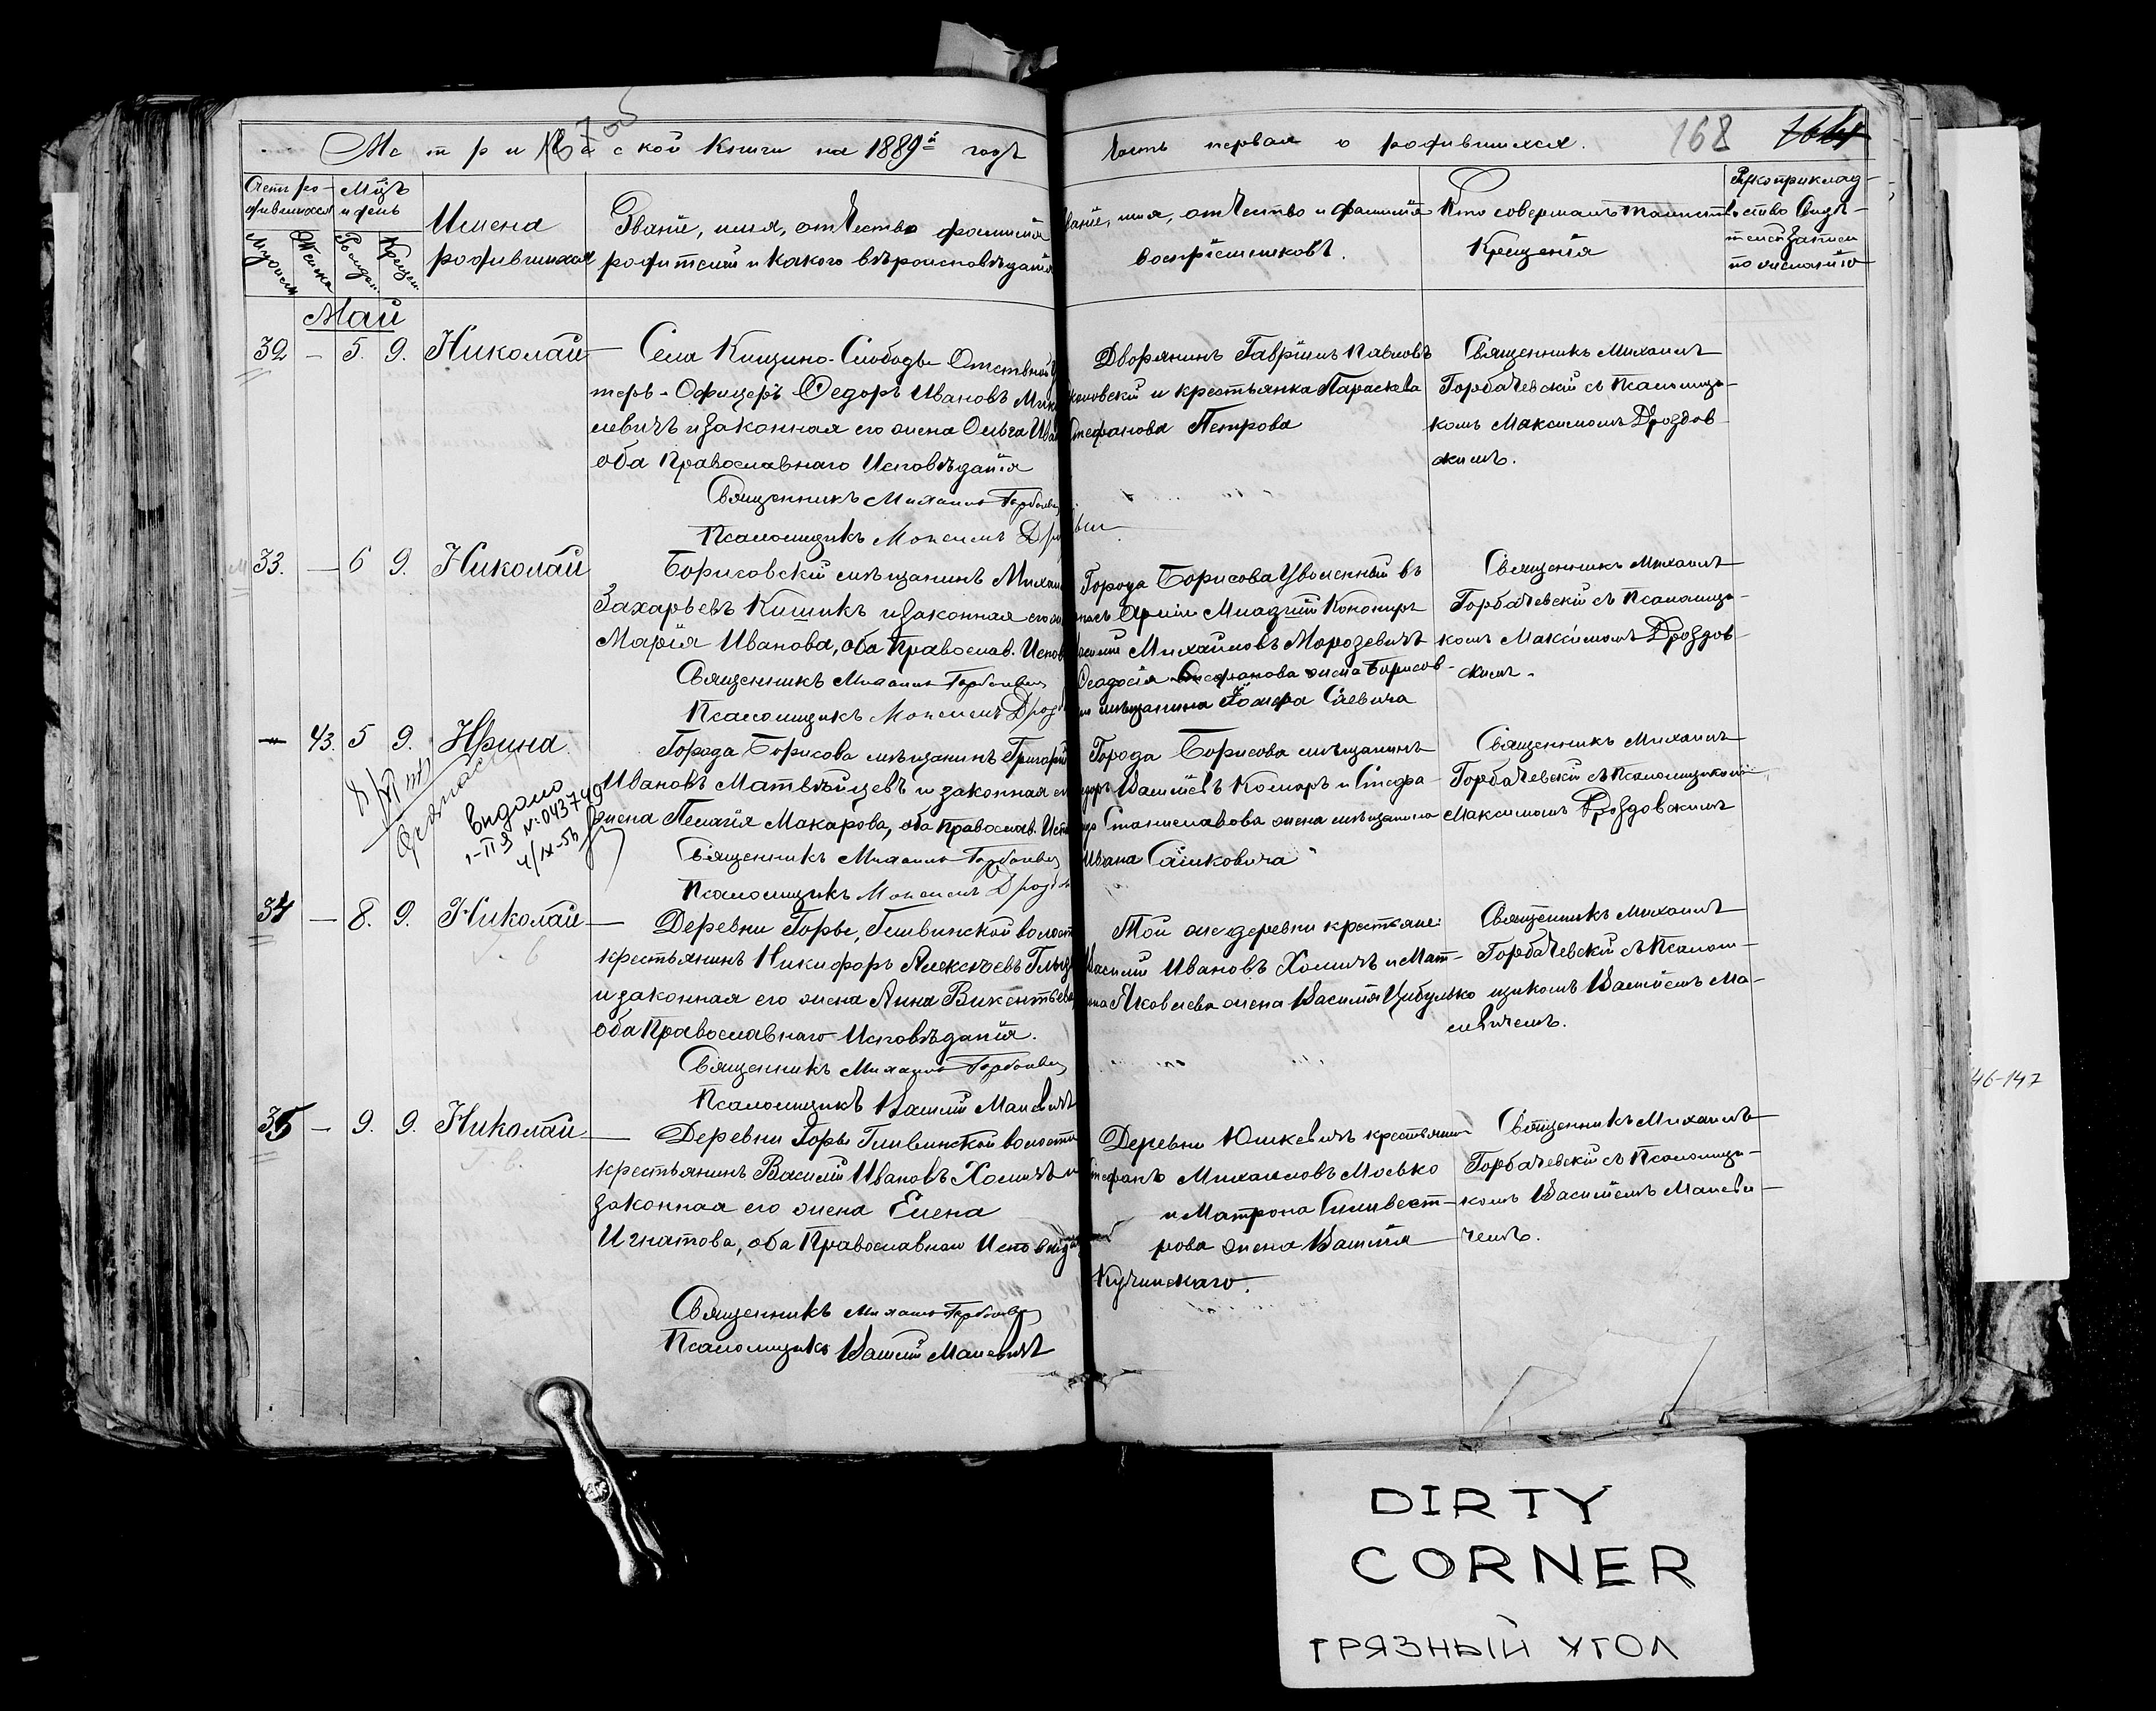 Метрической книги на 1889й годъ
Часть первая о родившихся.
168
Счетъ ро-
дившихся
Мцъ
и день
Имена
родившихся
Званіе, имя, отчество фамилія
родителей и какого вѣроисповѣданія
званіе, имя, отчество и фамилія
воспріемниковъ.
Кто совершалъ таинство
Крещенія
Рукоприклад-
ство свидѣ-
телей записи
по желанію
Май
32 – 5. 9. Николай
Села Кищино-Слободы Отставной
теръ-Офицеръ Ѳедоръ Ивановъ
левичъ и законная его жена Ольга
оба Православнаго Исповѣданія
Священникъ Михаилъ
Псаломщикъ
Дворянинъ Гавріилъ Павловъ
и крестьянка Параскева
Стефанова Петрова
Священникъ Михаилъ
Горбачевскій съ Псаломщи-
комъ Максимомъ Дроздов-
скимъ.
33. – 6 9. Николай
Борисовскій мѣщанинъ
Захарьевъ Кишикъ и законная его
Марія Иванова, оба Православ.
Священникъ Михаилъ
Псаломщикъ
Города Борисова Уволенный въ
Арміи Младшій
Михайловъ Морозевичъ
Ѳеодосія Стефанова жена Борисов-
мѣщанина
Священникъ Михаилъ
Горбачевскій съ Псаломщи-
комъ Максимомъ Дроздов-
скимъ.
43. 5 9. Ирина
Видано
1-ПЯ № 043749
4/IX-56
Города Борисова мѣщанинъ Григорій
Ивановъ Матвѣйцевъ и законная
жена Пелагія Макарова, оба Православ.
Священникъ Михаилъ
Псаломщикъ
Города Борисова мѣщанинъ
Василіевъ Комаръ и Стефа-
Станиславова жена мѣщанина
Ивана
Священникъ Михаилъ
Горбачевскій съ Псаломщикомъ
Максимомъ Дроздовскимъ
34 – 8. 9. Николай
Деревни Горы, Гливинской волости
крестьянинъ Никифоръ Алексѣевъ
и законная его жена Анна Викентьева
оба Православнаго Исповѣданія.
Священникъ Михаилъ
Псаломщикъ Василій
Той же деревни крестьяне:
Василій Ивановъ Хомичъ и Мат-
Яковлева жена Василія Цибулько
Священникъ Михаилъ
Горбачевскій съ Псалом-
щикомъ Василіемъ Ма-
левичемъ.
35 – 9. 9. Николай
Деревни Горы Гливинской волости
крестьянинъ Василій Ивановъ Хомичъ и
законная его жена Елена
Игнатова, оба Православнаго Исповѣда
Священникъ Михаилъ
Псаломщикъ Василій
Деревни Юшкевичъ крестьянинъ
Стефанъ Михаиловъ Мосько
и Матрона Сильвест-
рова жена Василія
Кучинскаго.
Священникъ Михаилъ
Горбачевскій съ Псаломщи-
комъ Василіемъ Малеви-
чемъ.
46-147
DIRTY
CORNER
ГРЯЗНЫЙ УГОЛ